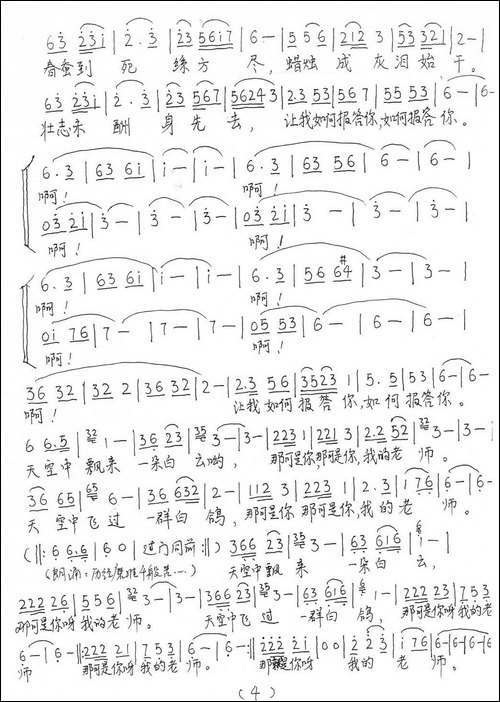 63 231 | 2.3 | 23 5617 | 6 - | 5 5 6 | 212 3 | 53 321 | 2 - |
春蚕到 死 丝方 尽,蜡烛 成 灰泪始 干。
63 231 | 2.3 | 23 567 | 5624 3 | 2.3 53 | 56 7 | 55 53 | 6 - | 6 -
壮志未 酬 身先 去, 让我如何报答你,如何报答 你。
6.3 | 63 61 | 1 - | 1 - | 6.3 | 63 56 | 6 - | 6 - |
啊! 啊!
03 21 | 3 - | 3 - | 3 - | 03 21 | 3 - | 3 - | 3 - |
啊! 啊!
6.3 | 63 61 | 1 - | 1 - | 6.3 | 56 6#4 | 3 - | 3 - |
啊! 啊!
01 76 | 7 - | 7 - | 7 - | 05 53 | 6 - | 6 - | 6 - |
啊! 啊!
36 32 | 32 2 | 36 32 | 2 - | 2.3 56 | 3523 1 | 5. 5 | 53 | 6 - | 6 -
啊! 让我 如何 报 答 你,如 何 报答 你。
6 6.5 | 32 1 - | 36 23 | 35 3 - | 3 - | 223 1 | 221 3 | 2.2 52 | 32 3 - | 3 - |
天 空中 飘来 一朵白 云哟, 那可是你那可是你,我的老 师。
36 65 | 65 6 - | 36 632 | 2 - | 112 3 | 223 1 | 2.3 | 176 | 6 - | 6 -
天 空中 飞 过 一群白 鸽, 那可是你 那可是你,我的 老 师。
( ‖: 6 6.6 | 6 0 | 过门同前 :‖ ) 366 23 | 35 3 - | 63 616 | 1 - |
天空中飘 来 一朵白 云,
222 26 | 55 6 | 32 3 - | 3 - | 366 23 | 35 3 - | 63 616 | 1 - | 222 23 | 753
那可是你呀 我的老 师。 天空中飞 过 一群白 鸽, 那可是你呀 我的老
6 - | 6 - ‖: 222 21 | 753 | 6 - | 6 - :‖ 222 21 | 00 | 223 | 176 | 6 - | 6 - | 6 - | 6
师 那可是你呀 我的老 师。 那可是你呀 我的 老 师。
(4)